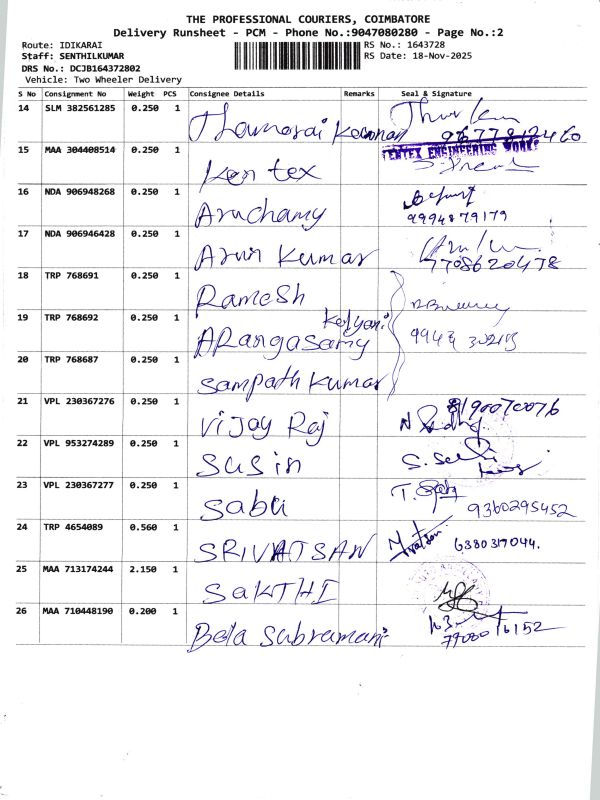 THE PROFESSIONAL COURIERS, COIMBATORE
Delivery Runsheet - PCM - Phone No.:9047080280 - Page No.:2
Route: IDIKARAI RS No.: 1643728
Staff: SENTHILKUMAR RS Date: 18-Nov-2025
DRS No.: DCJB164372802
Vehicle: Two Wheeler Delivery
S No Consignment No Weight PCS Consignee Details Remarks Seal & Signature
14 SLM 382561285 0.250 1 Kannan
15 MAA 304408514 0.250 1 Ken tex TENTEX ENGINEERING WORKS
16 NDA 906948268 0.250 1 Aruchamy 9994879179
17 NDA 906946428 0.250 1 Arun Kumar 7708620478
18 TRP 768691 0.250 1 Ramesh
19 TRP 768692 0.250 1 Kalyani ARangasamy
20 TRP 768687 0.250 1 Sampath Kumar
21 VPL 230367276 0.250 1 Vijay Raj 8190070076
22 VPL 953274289 0.250 1 Susin
23 VPL 230367277 0.250 1 Sabu 9360295452
24 TRP 4654089 0.560 1 SRIVATSAN 6380317044.
25 MAA 713174244 2.150 1 SAKTHI
26 MAA 710448190 0.200 1 Bala Subramani